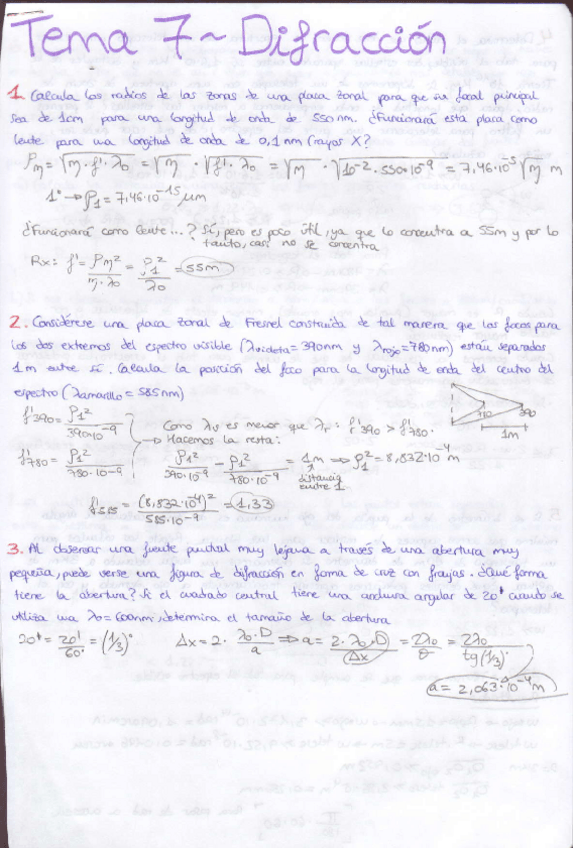 Tema 7 ~ Difracción
1. Calcula los radios de las zonas de una placa zonal para que su focal principal
sea de 1cm para una longitud de onda de 550nm. ¿Funcionará esta placa como
lente para una longitud de onda de 0,1 nm (rayos X)?
ρm = √m·f'·λ0 = √m · √f'·λ0 = √m · √10^-2·550·10^-9 = 7,46·10^-5 √m m
1° → ρ1 = 7,46·10^-15 μm
¿Funcionará como lente...? Sí, pero es poco útil, ya que lo concentra a 55m y por lo
tanto, casi no se concentra
Rx: f' = ρm²/m·λ0 = ρ1²/λ0 = 55m
2. Considérese una placa zonal de Fresnel construida de tal manera que los focos para
los dos extremos del espectro visible (λvioleta = 390nm y λrojo = 780nm) están separados
1m entre sí. Calcula la posición del foco para la longitud de onda del centro del
espectro (λamarillo = 585nm)
f'390 = ρ1²/390·10^-9
Como λv es menor que λr: f'390 > f'780.
→ Hacemos la resta:
f'780 = ρ1²/780·10^-9
ρ1²/390·10^-9 - ρ1²/780·10^-9 = 1m → ρ1² = 8,832·10^-4 m
distancia
entre 1
780 390
1m
f'585 = (8,832·10^-4)²/585·10^-9 = 1,33
3. Al observar una fuente puntual muy lejana a través de una abertura muy
pequeña, puede verse una figura de difracción en forma de cruz con franjas. ¿Qué forma
tiene la abertura? Si el cuadrado central tiene una anchura angular de 20' cuando se
utiliza una λ0 = 600nm, determina el tamaño de la abertura
20' = 20'/60' = (1/3)° Δx = 2· λ0·D/a ⇒ a = 2·λ0·D/Δx = 2λ0/θ = 2λ0/tg(1/3)°
a = 2,063·10^-4 m